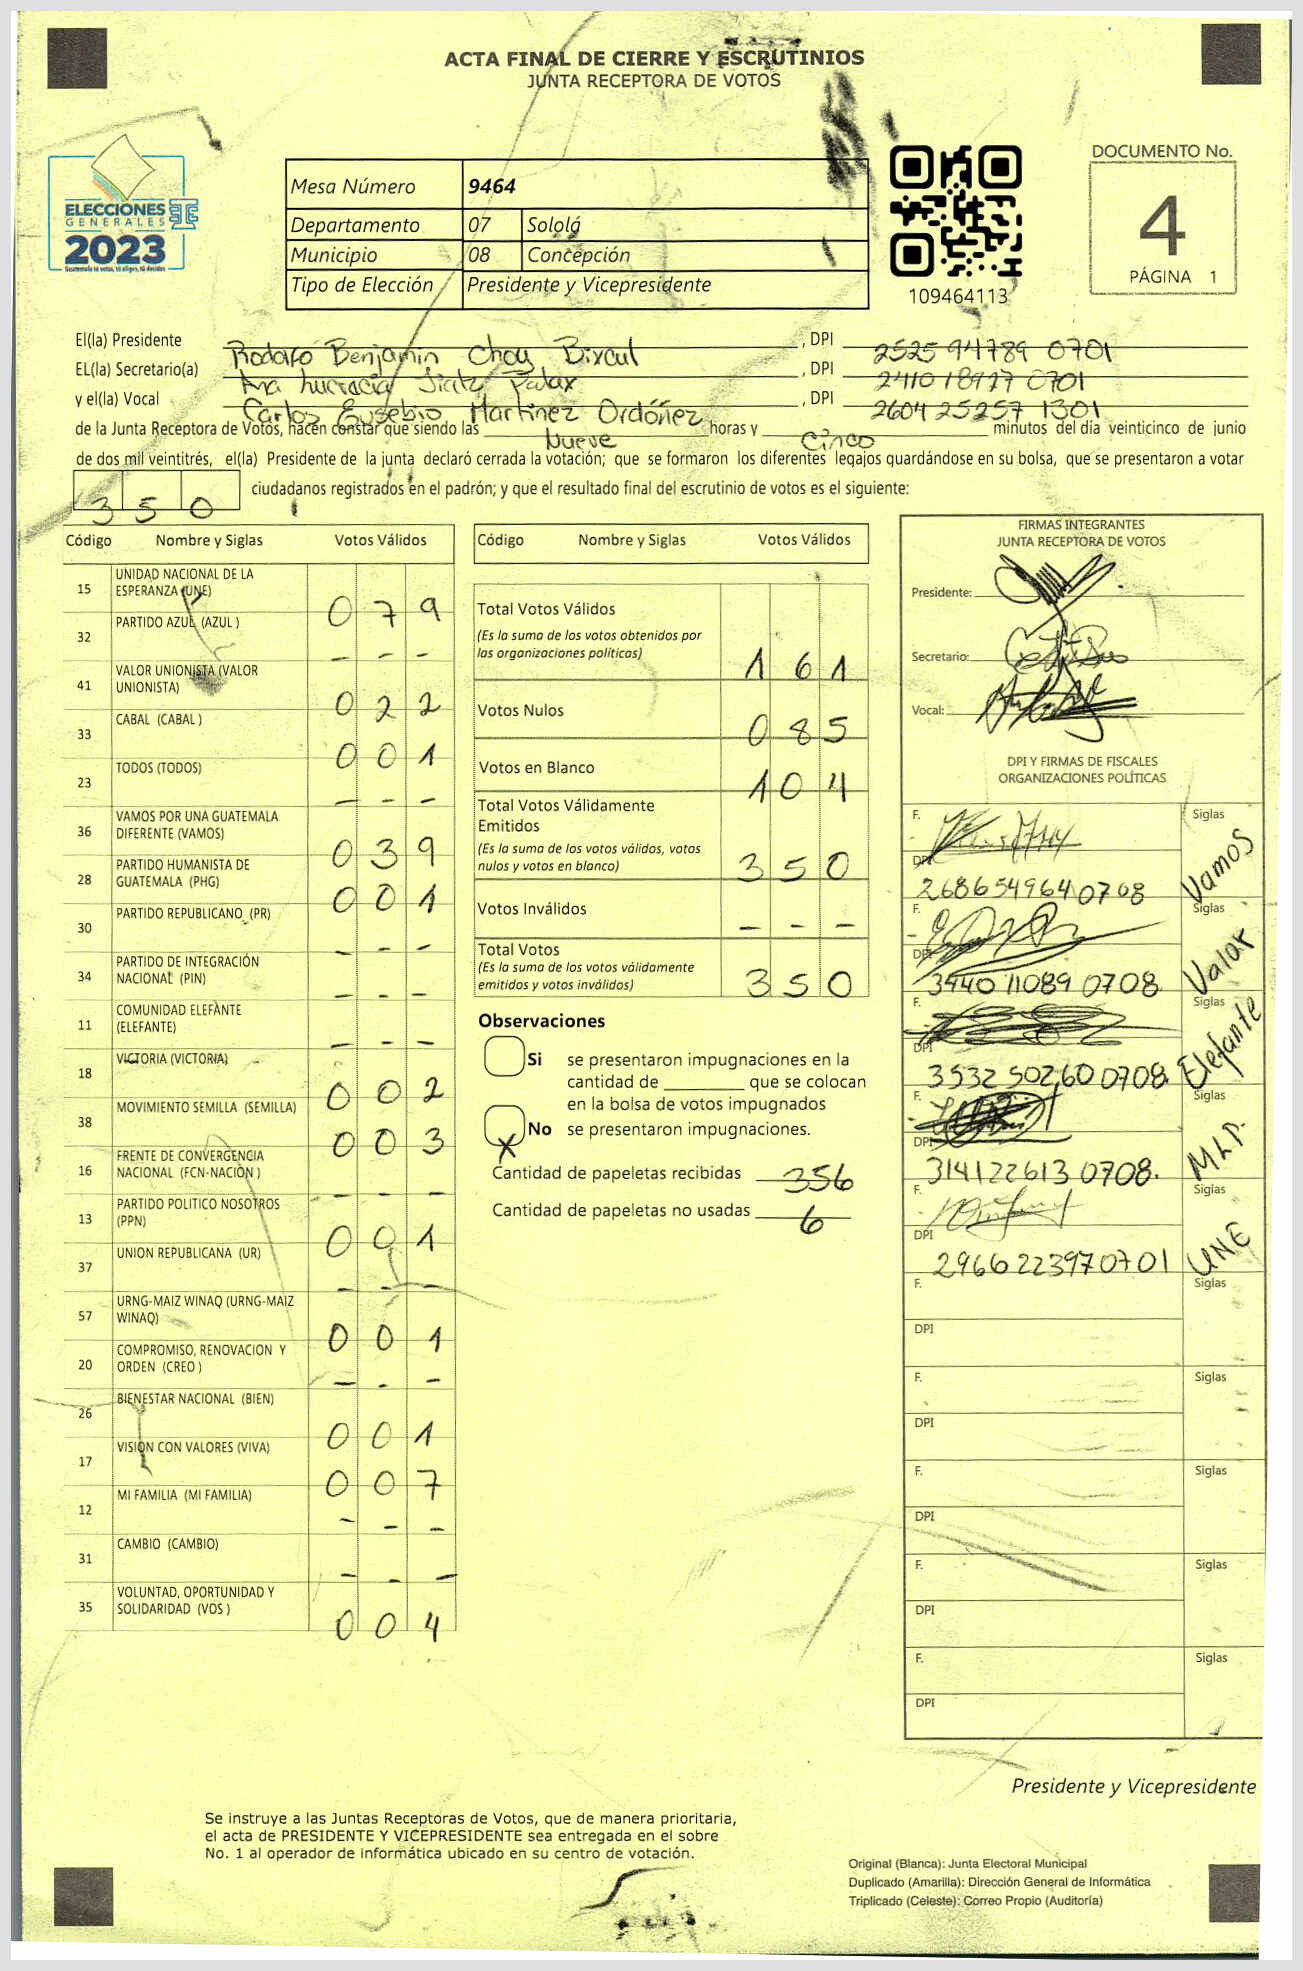 ACTA FINAL DE CIERRE Y ESCRUTINIOS
JUNTA RECEPTORA DE VOTOS
ELECCIONES
GENERALES
2023
Guatemala tú votas, tú eliges, tú decides
Mesa Número 9464
Departamento 07 Sololá
Municipio 08 Concepción
Tipo de Elección Presidente y Vicepresidente
109464113
DOCUMENTO No.
4
PÁGINA 1
El(la) Presidente Rodolfo Benjamin Choy Bixcul, DPI 2525 94789 0701
EL(la) Secretario(a) Ana, DPI 2410 18927 0701
y el(la) Vocal Carlos Eusebio Martinez Ordóñez, DPI 2604 25257 1301
de la Junta Receptora de Votos, hacen constar que siendo las Nueve horas y Cinco minutos del día veinticinco de junio
de dos mil veintitrés, el(la) Presidente de la junta declaró cerrada la votación; que se formaron los diferentes legajos guardándose en su bolsa, que se presentaron a votar
350 ciudadanos registrados en el padrón; y que el resultado final del escrutinio de votos es el siguiente:
Código Nombre y Siglas Votos Válidos
15 UNIDAD NACIONAL DE LA ESPERANZA (UNE) 079
32 PARTIDO AZUL (AZUL ) - - -
41 VALOR UNIONISTA (VALOR UNIONISTA) 022
33 CABAL (CABAL ) 001
23 TODOS (TODOS) - - -
36 VAMOS POR UNA GUATEMALA DIFERENTE (VAMOS) 039
28 PARTIDO HUMANISTA DE GUATEMALA (PHG) 001
30 PARTIDO REPUBLICANO (PR) - - -
34 PARTIDO DE INTEGRACIÓN NACIONAL (PIN) - - -
11 COMUNIDAD ELEFANTE (ELEFANTE) - - -
18 VICTORIA (VICTORIA) 002
38 MOVIMIENTO SEMILLA (SEMILLA) 003
16 FRENTE DE CONVERGENCIA NACIONAL (FCN-NACION ) - - -
13 PARTIDO POLITICO NOSOTROS (PPN) 001
37 UNION REPUBLICANA (UR) - - -
57 URNG-MAIZ WINAQ (URNG-MAIZ WINAQ) 001
20 COMPROMISO, RENOVACION Y ORDEN (CREO ) - - -
26 BIENESTAR NACIONAL (BIEN) 001
17 VISION CON VALORES (VIVA) 007
12 MI FAMILIA (MI FAMILIA) - - -
31 CAMBIO (CAMBIO) - - -
35 VOLUNTAD, OPORTUNIDAD Y SOLIDARIDAD (VOS ) 004
Código Nombre y Siglas Votos Válidos
Total Votos Válidos 161
(Es la suma de los votos obtenidos por
las organizaciones políticas)
Votos Nulos 085
Votos en Blanco 104
Total Votos Válidamente
Emitidos 350
(Es la suma de los votos válidos, votos
nulos y votos en blanco)
Votos Inválidos - - -
Total Votos 350
(Es la suma de los votos válidamente
emitidos y votos inválidos)
Observaciones
Si se presentaron impugnaciones en la
cantidad de ________ que se colocan
en la bolsa de votos impugnados
X No se presentaron impugnaciones.
Cantidad de papeletas recibidas 356
Cantidad de papeletas no usadas 6
FIRMAS INTEGRANTES
JUNTA RECEPTORA DE VOTOS
Presidente:
Secretario:
Vocal:
DPI Y FIRMAS DE FISCALES
ORGANIZACIONES POLÍTICAS
F. Siglas Vamos
DPI 268654964 0708
F. Siglas Valor
DPI 3440 11089 0708
F. Siglas Elefante
DPI 3532 50260 0708.
F. Siglas MLP.
DPI 314122613 0708.
F. Siglas UNE
DPI 2966 22397 0701
F. Siglas
DPI
F. Siglas
DPI
F. Siglas
DPI
F. Siglas
DPI
F. Siglas
DPI
Presidente y Vicepresidente
Se instruye a las Juntas Receptoras de Votos, que de manera prioritaria,
el acta de PRESIDENTE Y VICEPRESIDENTE sea entregada en el sobre
No. 1 al operador de informática ubicado en su centro de votación.
Original (Blanca): Junta Electoral Municipal
Duplicado (Amarilla): Dirección General de Informática
Triplicado (Celeste): Correo Propio (Auditoría)